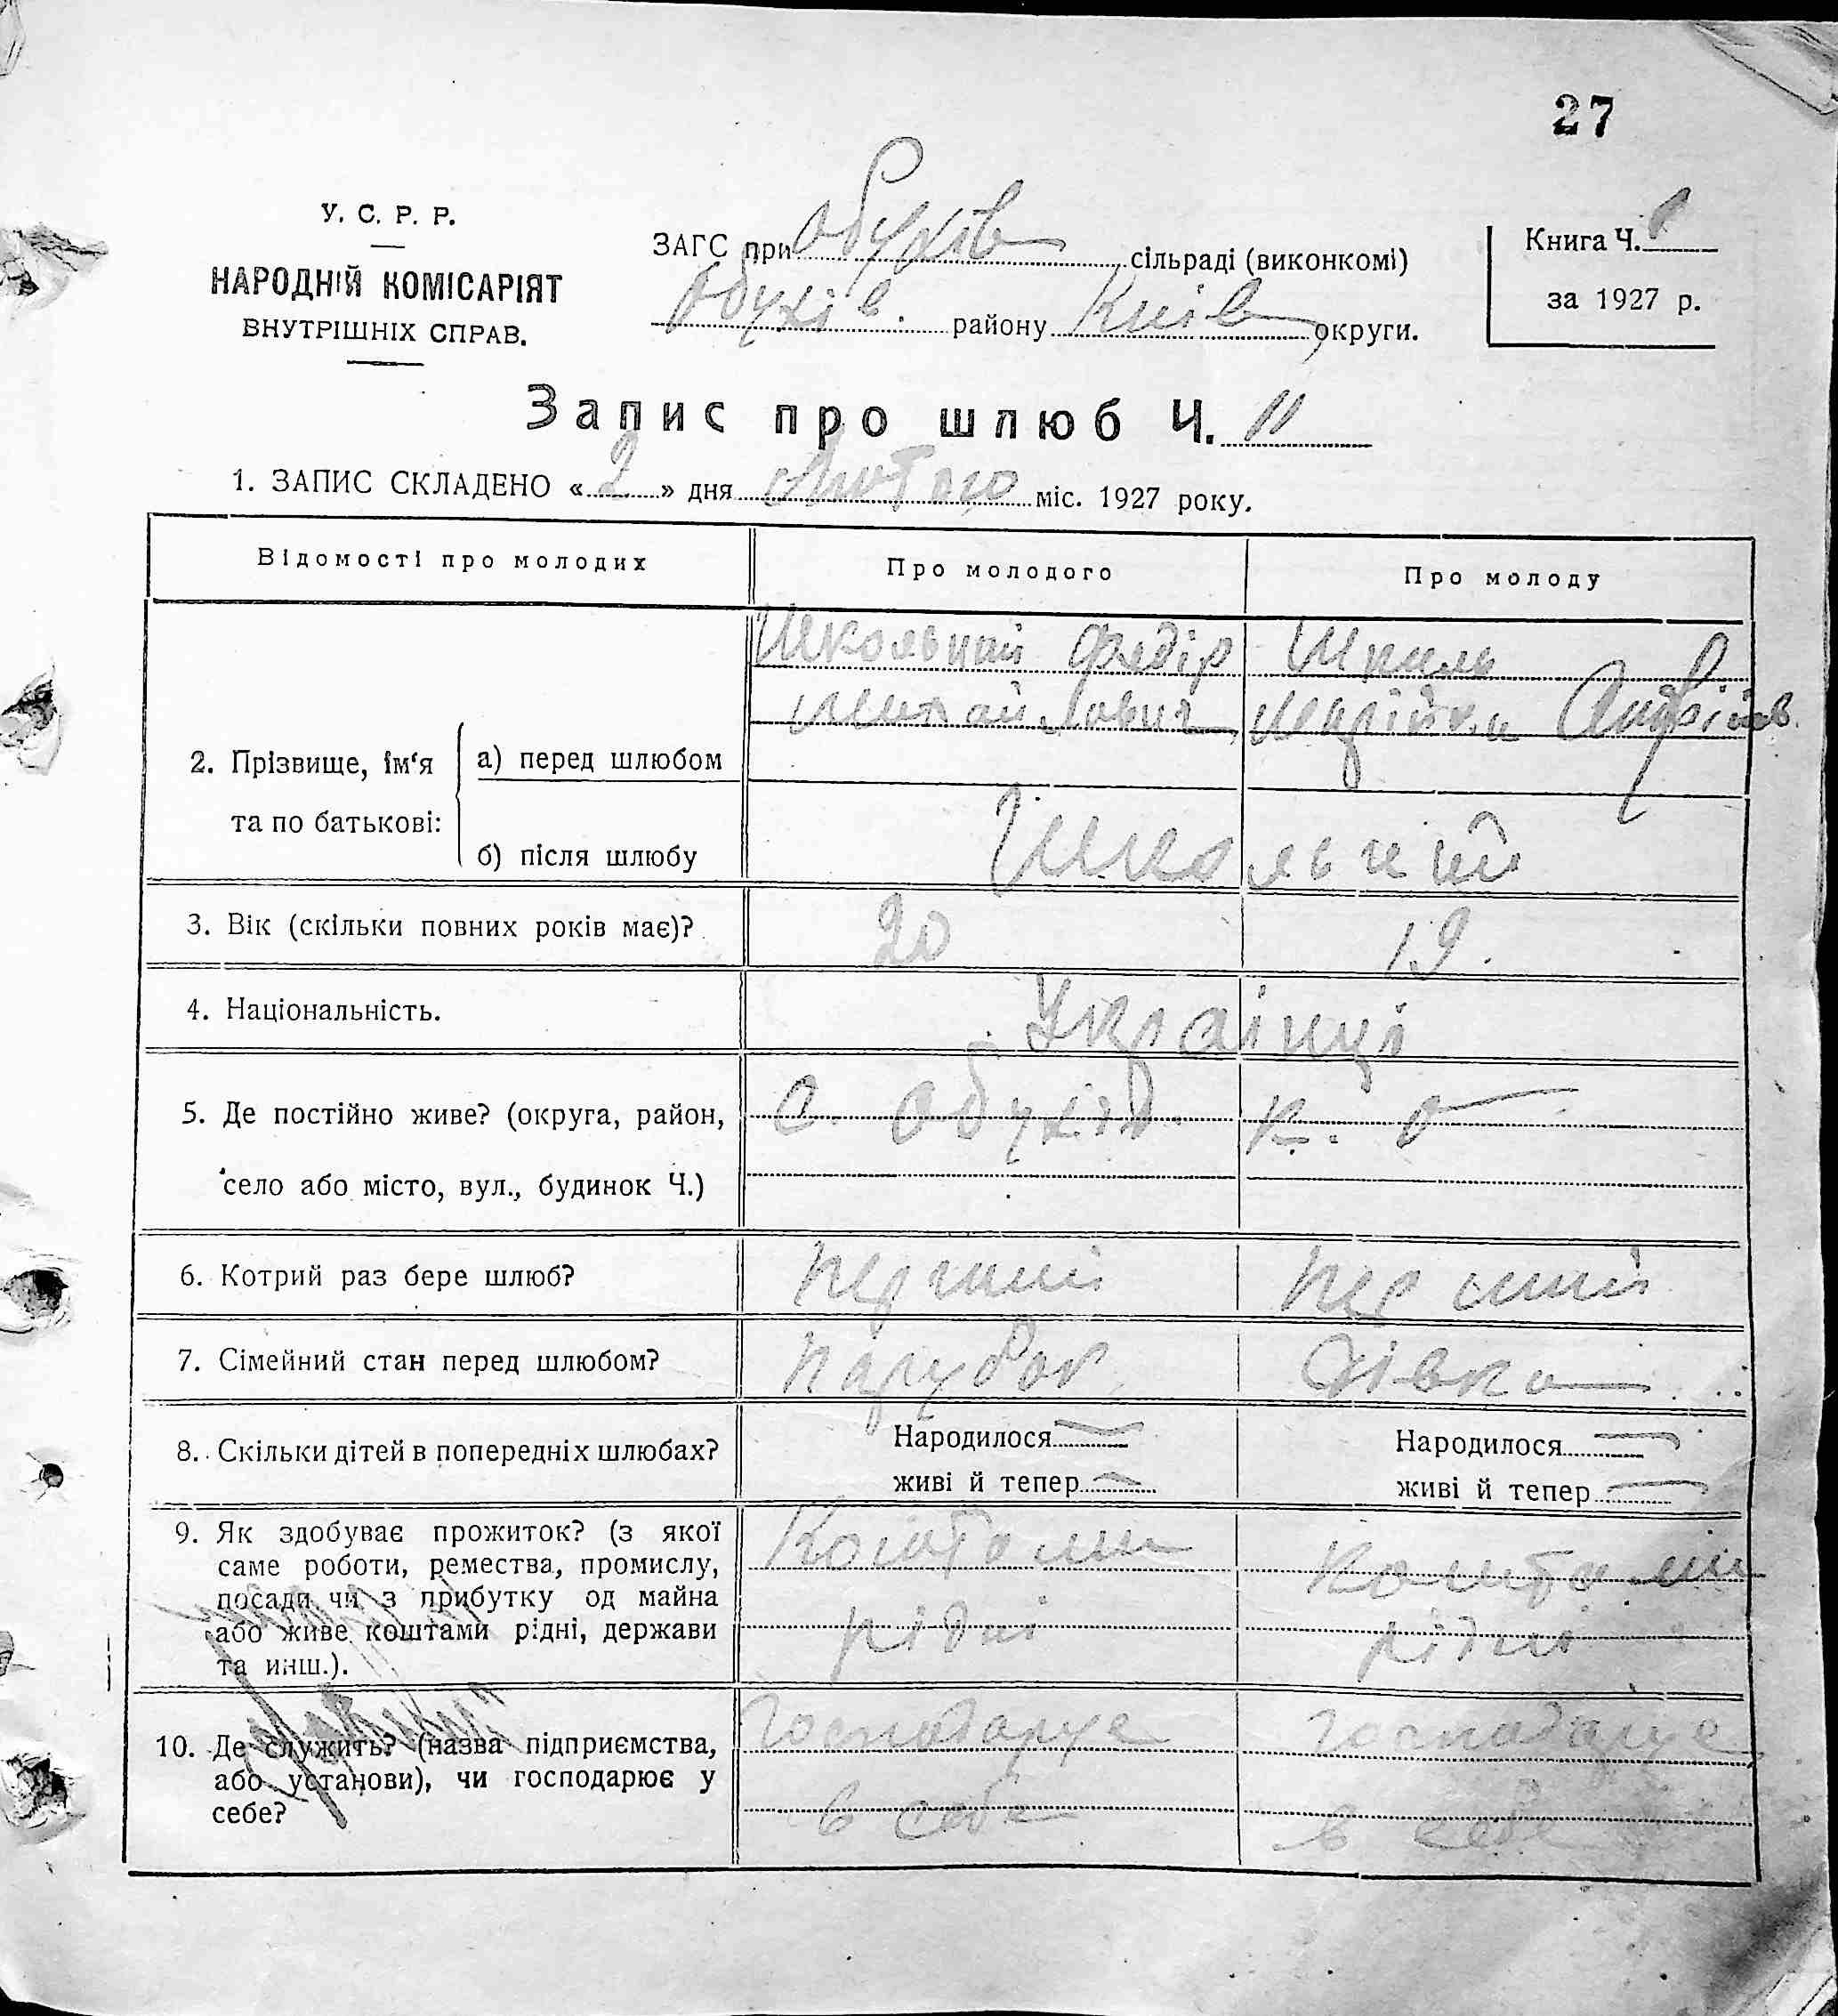 27
У. С. Р. Р.
НАРОДНІЙ КОМІСАРІЯТ
ВНУТРІШНІХ СПРАВ.
ЗАГС при Обухів сільраді (виконкомі)
Обухів. району Київ округи.
Книга Ч.
за 1927 р.
Запис про шлюб Ч. 11
1. ЗАПИС СКЛАДЕНО «2» дня Лютого міс. 1927 року.
Відомості про молодих Про молодого Про молоду
2. Прізвище, ім‘я та по батькові:
а) перед шлюбом
Школьний Федір
Михайлович
Шкиль
Андріїв.
б) після шлюбу
Школьний
3. Вік (скільки повних років має)? 20 19.
4. Національність. Українці
5. Де постійно живе? (округа, район,
село або місто, вул., будинок Ч.)
с. Обухів. К. О
6. Котрий раз бере шлюб? перший перший
7. Сімейний стан перед шлюбом? парубок дівка
8. Скільки дітей в попередніх шлюбах? Народилося — Народилося —
живі й тепер — живі й тепер —
9. Як здобуває прожиток? (з якої
саме роботи, ремества, промислу,
посади чи з прибутку од майна
або живе коштами рідні, держави
та инш.).
Коштами
рідні
Коштами
рідні
10. Де служить? (назва підприємства,
або установи), чи господарює у
себе?
Господарує
в себе
Господарує
в себе